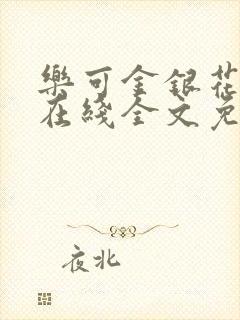 樂可金銀花
在綫全文免
夜北